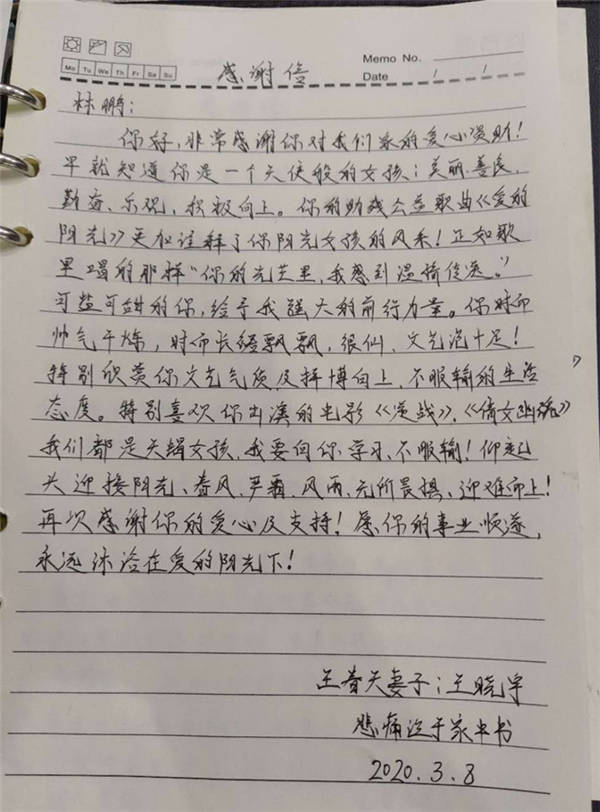 Memo No.
Mo Tu We Th Fr Sa Su
Date / /
感谢信
林鹏:
你好,非常感谢你对我们家的爱心资助!
早就知道你是一个天使般的女孩;美丽、善良、
勤奋、乐观、积极向上。你的助残公益歌曲《爱的
阳光》更加诠释了你阳光女孩的风采!正如歌
里唱的那样“你的光芒里,我感到温情俊逸。”
可盐可甜的你,给予我强大的前行力量。你时而
帅气干炼,时而长裙飘飘,很仙、文艺范十足!
特别欣赏你文艺气质及拼博向上、不服输的生活
态度。特别喜欢你出演的电影《逆战》、《倩女幽魂》
我们都是天蝎女孩,我要向你学习、不服输!仰起
头迎接阳光、春风、严霜、风雨、无所畏惧、迎难而上!
再次感谢你的爱心及支持!愿你的事业顺遂,
永远沐浴在爱的阳光下!
王春天妻子:王晓宇
悲痛泣于家中书
2020.3.8